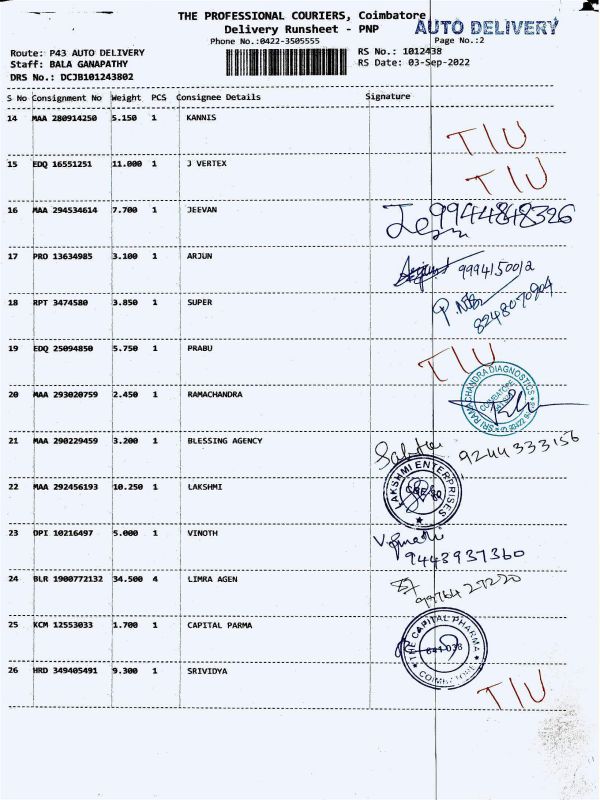 THE PROFESSIONAL COURIERS, Coimbatore
AUTO DELIVERY
Delivery Runsheet - PNP
Phone No.:0422-3505555
Page No.:2
Route: P43 AUTO DELIVERY
RS No.: 1012438
Staff: BALA GANAPATHY
RS Date: 03-Sep-2022
DRS No.: DCJB101243802
S No Consignment No Weight PCS Consignee Details Signature
14 MAA 280914250 5.150 1 KANNIS
TIU
15 EDQ 16551251 11.000 1 J VERTEX
TIU
16 MAA 294534614 7.700 1 JEEVAN
9944848326
17 PRO 13634985 3.100 1 ARJUN
Arjun 9994150012
18 RPT 3474580 3.850 1 SUPER
8248070904
19 EDQ 25094850 5.750 1 PRABU
TIU
20 MAA 293020759 2.450 1 RAMACHANDRA
SRI RAMACHANDRA DIAGNOSTICS
COIMBATORE
21 MAA 290229459 3.200 1 BLESSING AGENCY
9244333156
22 MAA 292456193 10.250 1 LAKSHMI
LAKSHMI ENTERPRISES
23 OPI 10216497 5.000 1 VINOTH
9443937360
24 BLR 1900772132 34.500 4 LIMRA AGEN
9976427220
25 KCM 12553033 1.700 1 CAPITAL PARMA
THE CAPITAL PHARMA
COIMBATORE
26 HRD 349405491 9.300 1 SRIVIDYA
TIU